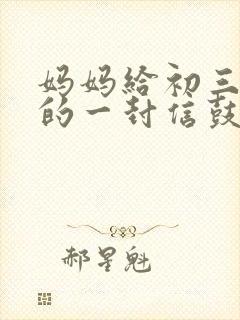 妈妈给初三
的一封信鼓
郝星魁